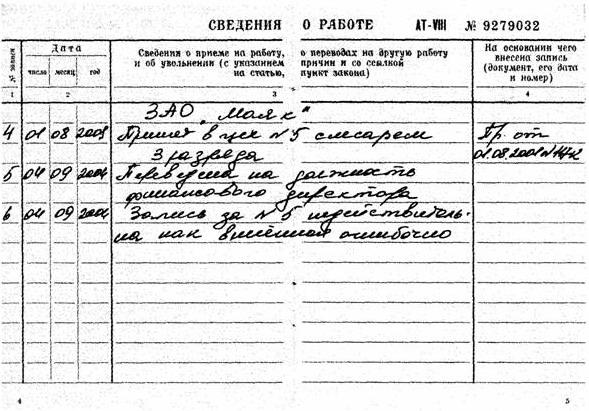 СВЕДЕНИЯ О РАБОТЕ AT-VIII № 9279032
№ записи
Дата
число месяц год
Сведения о приеме на работу, о переводах на другую работу
и об увольнении (с указанием причин и со ссылкой
на статью, пункт закона)
На основании чего
внесена запись
(документ, его дата
и номер)
1 2 3 4
ЗАО „Маяк"
4 01 08 Принят в цех №5 слесарем Пр. от
3 разряда
5 04 09 Переведена на должность
финансового директора
6 04 09 Запись за №5 недействитель-
на как внесённая ошибочно
4 5